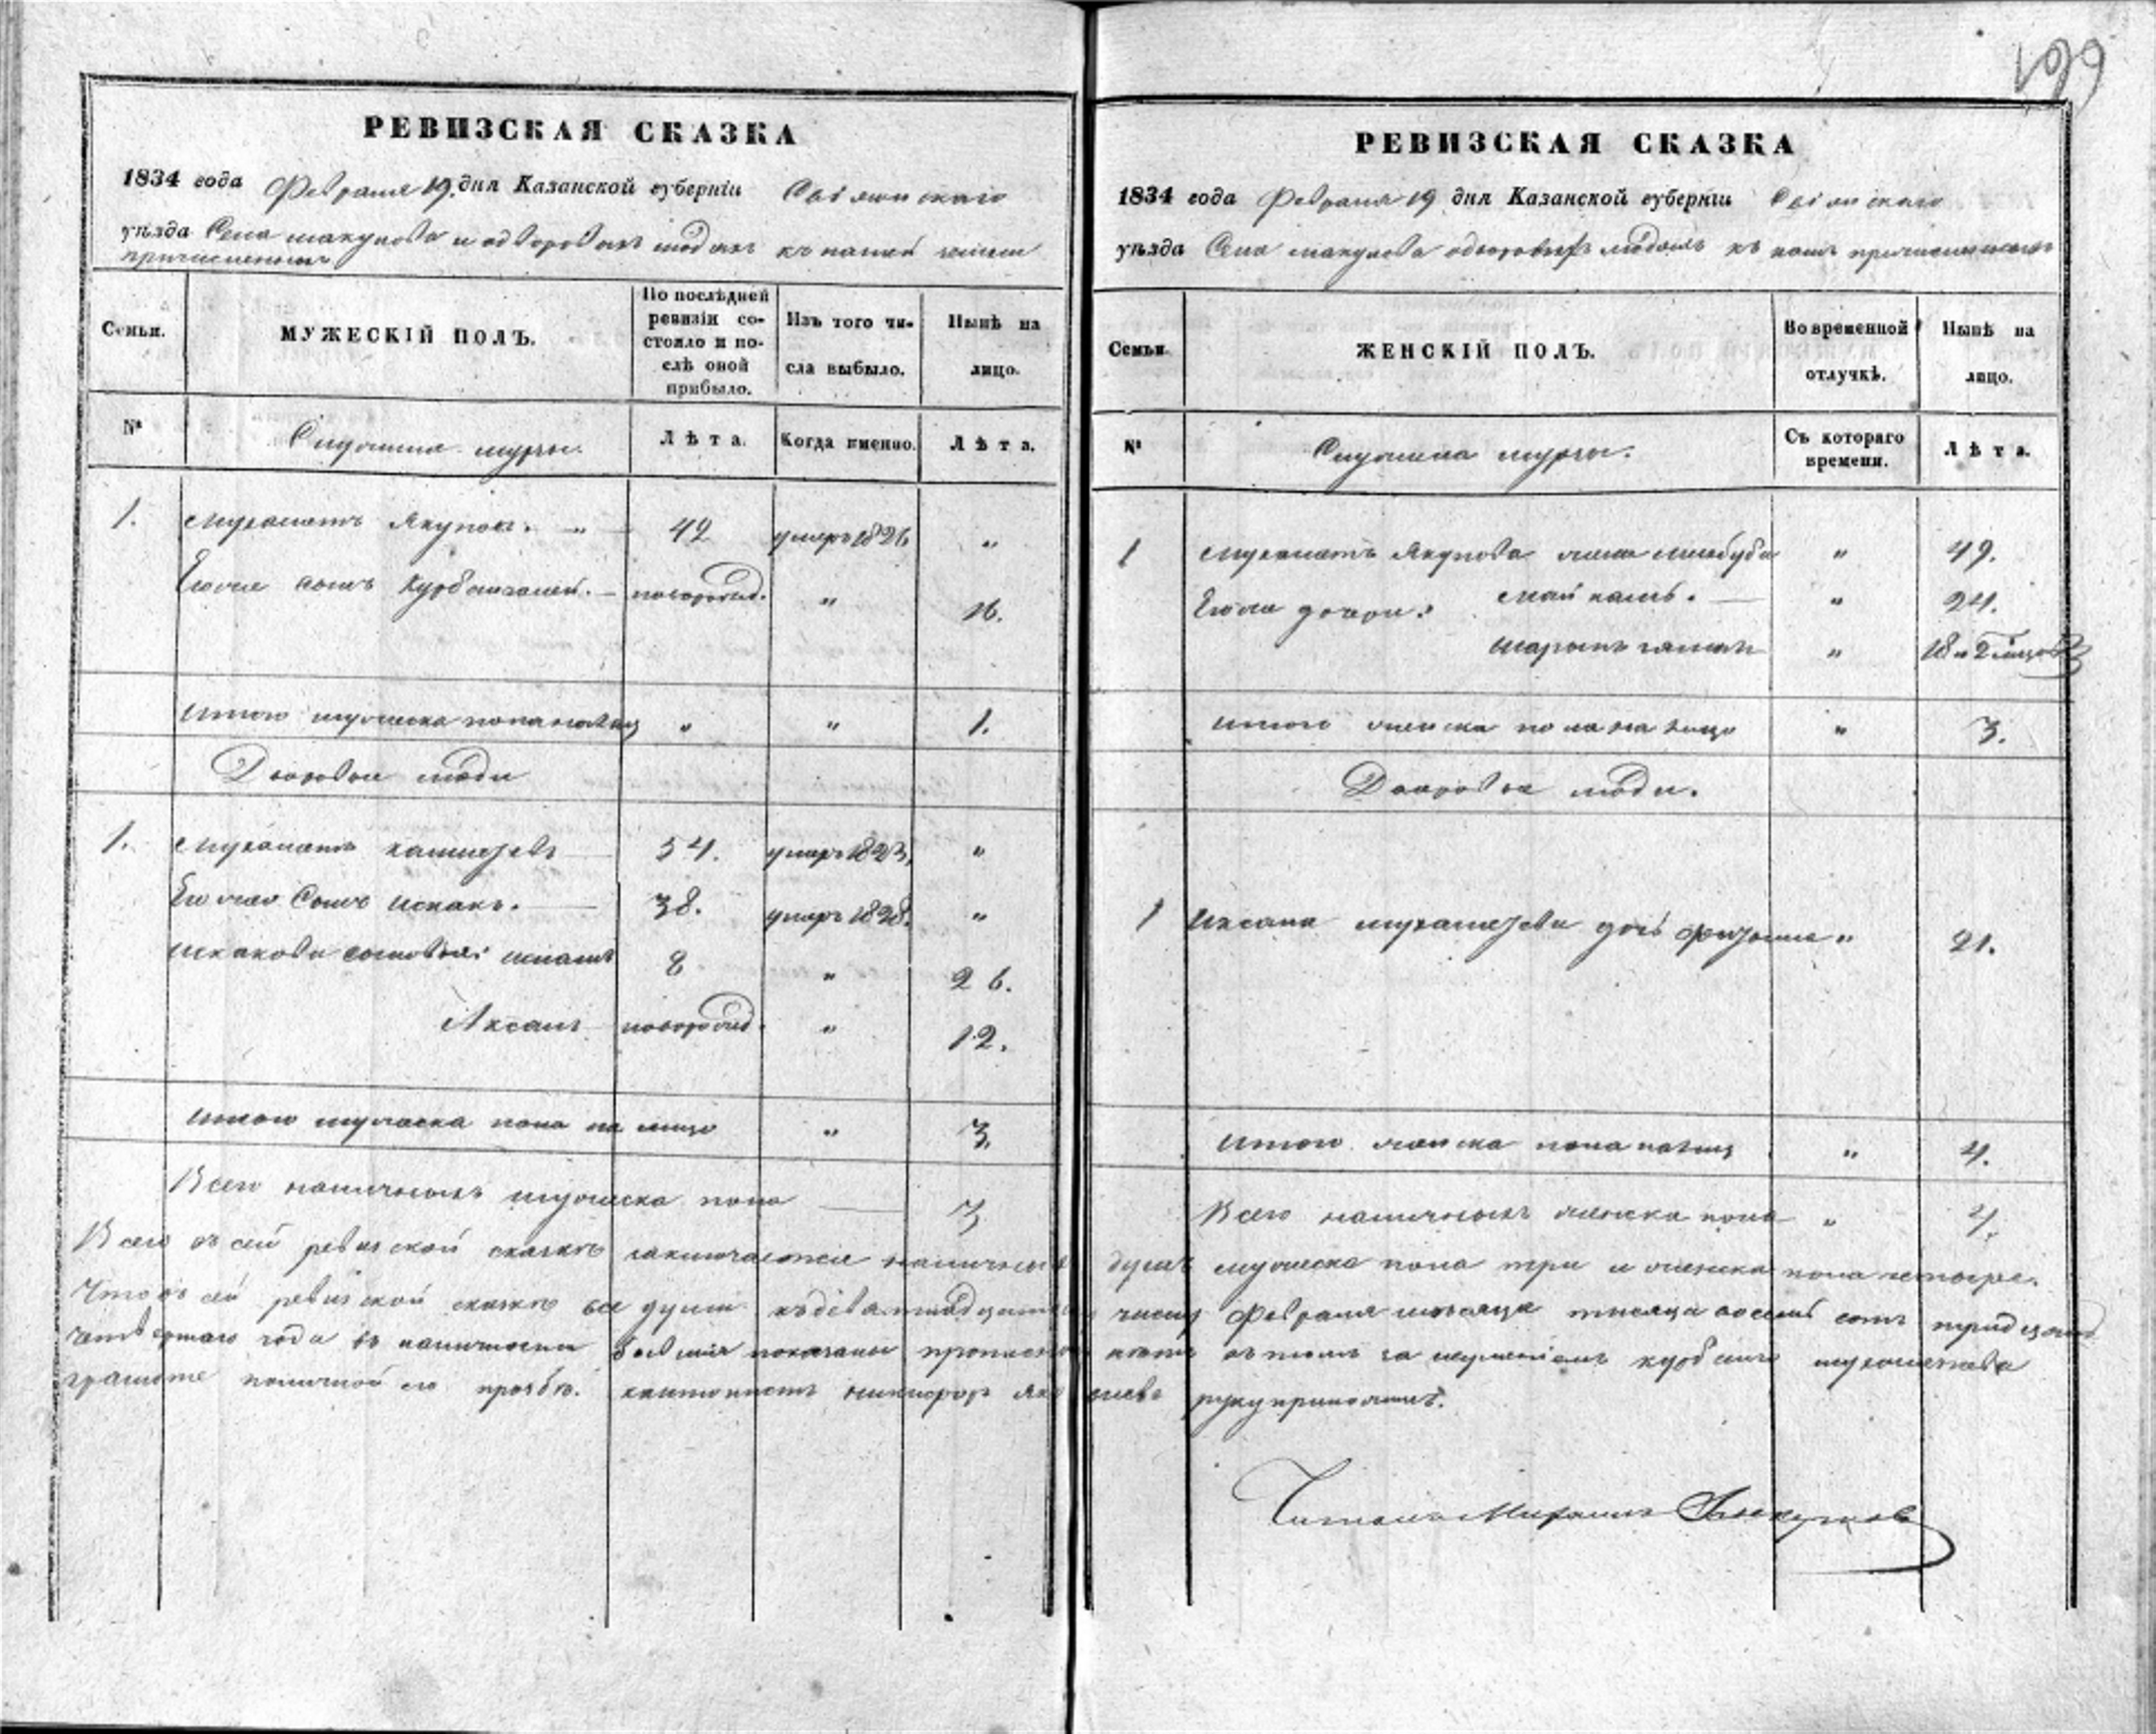 199
РЕВИЗСКАЯ СКАЗКА
1834 года Февраля 19. дня Казанской губерніи Свіяжскаго
уѣзда Села макулова и одворовыхъ людяхъ къ нашей
причисленныхъ
Семьи.
МУЖЕСКІЙ ПОЛЪ.
По послѣдней ревизіи состояло и послѣ оной прибыло.
Изъ того числа выбыло.
Нынѣ на лицо.
№
Служилыя мурзы.
Лѣта.
Когда именно.
Лѣта.
1. Мухаметъ Якупов. 42 умеръ 1826 „
Егоже сынъ Курбангалей. новорожд. „ 16.
Итого мужеска пола налицо „ „ 1.
Дворовые люди
1. Мухаметъ 54. умеръ 1823, „
Его же Сынъ Исхакъ. 38. умеръ 1828. „
Исхакова сыновья: 8 „ 26.
Аксанъ новорожд. „ 12.
Итого мужеска пола на лицо „ 3.
Всего наличныхъ мужеска пола 3
РЕВИЗСКАЯ СКАЗКА
1834 года Февраля 19 дня Казанской губерніи Свіяжскаго
уѣзда Села макулова одворовыхъ людяхъ къ намъ причисленныхъ
Семьи.
ЖЕНСКІЙ ПОЛЪ.
Во временной отлучкѣ.
Нынѣ на лицо.
№
Служилыя мурзы.
Съ котораго времени.
Лѣта.
1 Мухаметъ Якупова жена „ 49.
Егоже дочери: „ 24.
„ 18 и 2 мѣсяцовъ
Итого женска пола на лицо „ 3.
Дворовые люди.
1 дочь „ 21.
Итого женска пола налицо „ 4.
Всего наличныхъ женска пола „ 4.
Всего въ сей ревизской сказкѣ заключается наличныхъ душъ мужеска пола три и женска пола четыре.
Что въ сей ревизской сказкѣ все души къ девятнадцатому числу Февраля мѣсяца тысяча восемь сотъ тридцать
четвертаго года въ наличности бывшія показаны въ томъ за неумѣніемъ
грамоте по личной его прозбѣ. руку приложилъ.